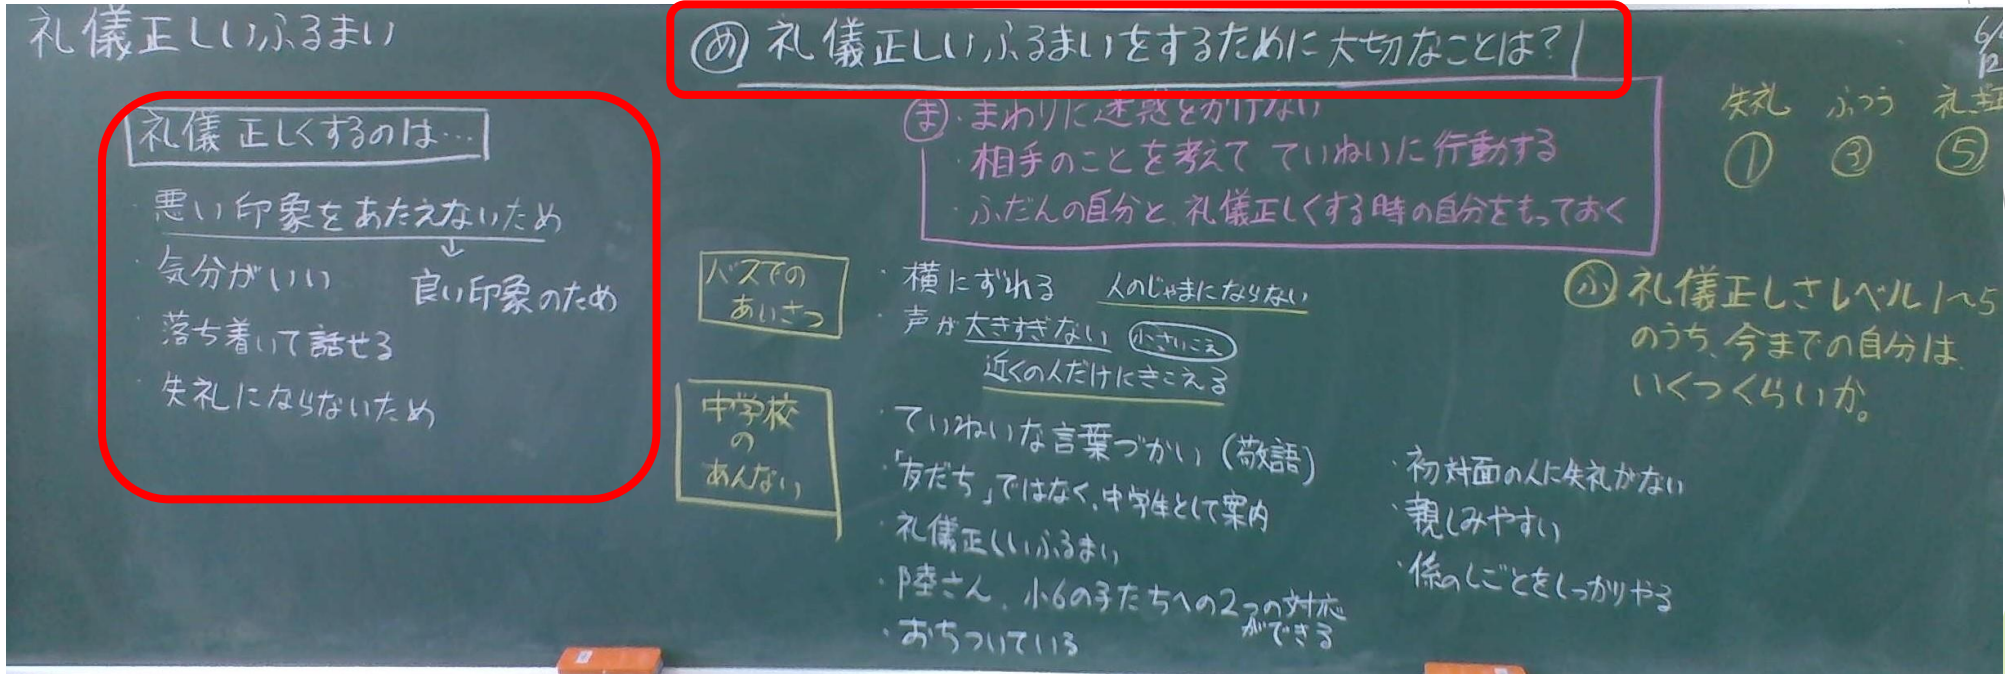 礼儀正しいふるまい
礼儀正しくするのは…
・悪い印象をあたえないため
↓
良い印象のため
・気分がいい
・落ち着いて話せる
・失礼にならないため
め 礼儀正しいふるまいをするために大切なことは?
ま・まわりに迷惑をかけない
・相手のことを考えて ていねいに行動する
・ふだんの自分と、礼儀正しくする時の自分をもっておく
バスでの
あいさつ
・横にずれる 人のじゃまにならない
・声が大きすぎない 小さいこえ
近くの人だけにきこえる
中学校
の
あんない
・ていねいな言葉づかい(敬語)
・「友だち」ではなく、中学生として案内
・礼儀正しいふるまい
・陸さん、小6の子たちへの2つの対応
ができる
・おちついている
・初対面の人に失礼がない
・親しみやすい
・係のしごとをしっかりやる
失礼 ふつう 礼
① ③ ⑤
ふ 礼儀正しさレベル1〜5
のうち、今までの自分は、
いくつくらいか。